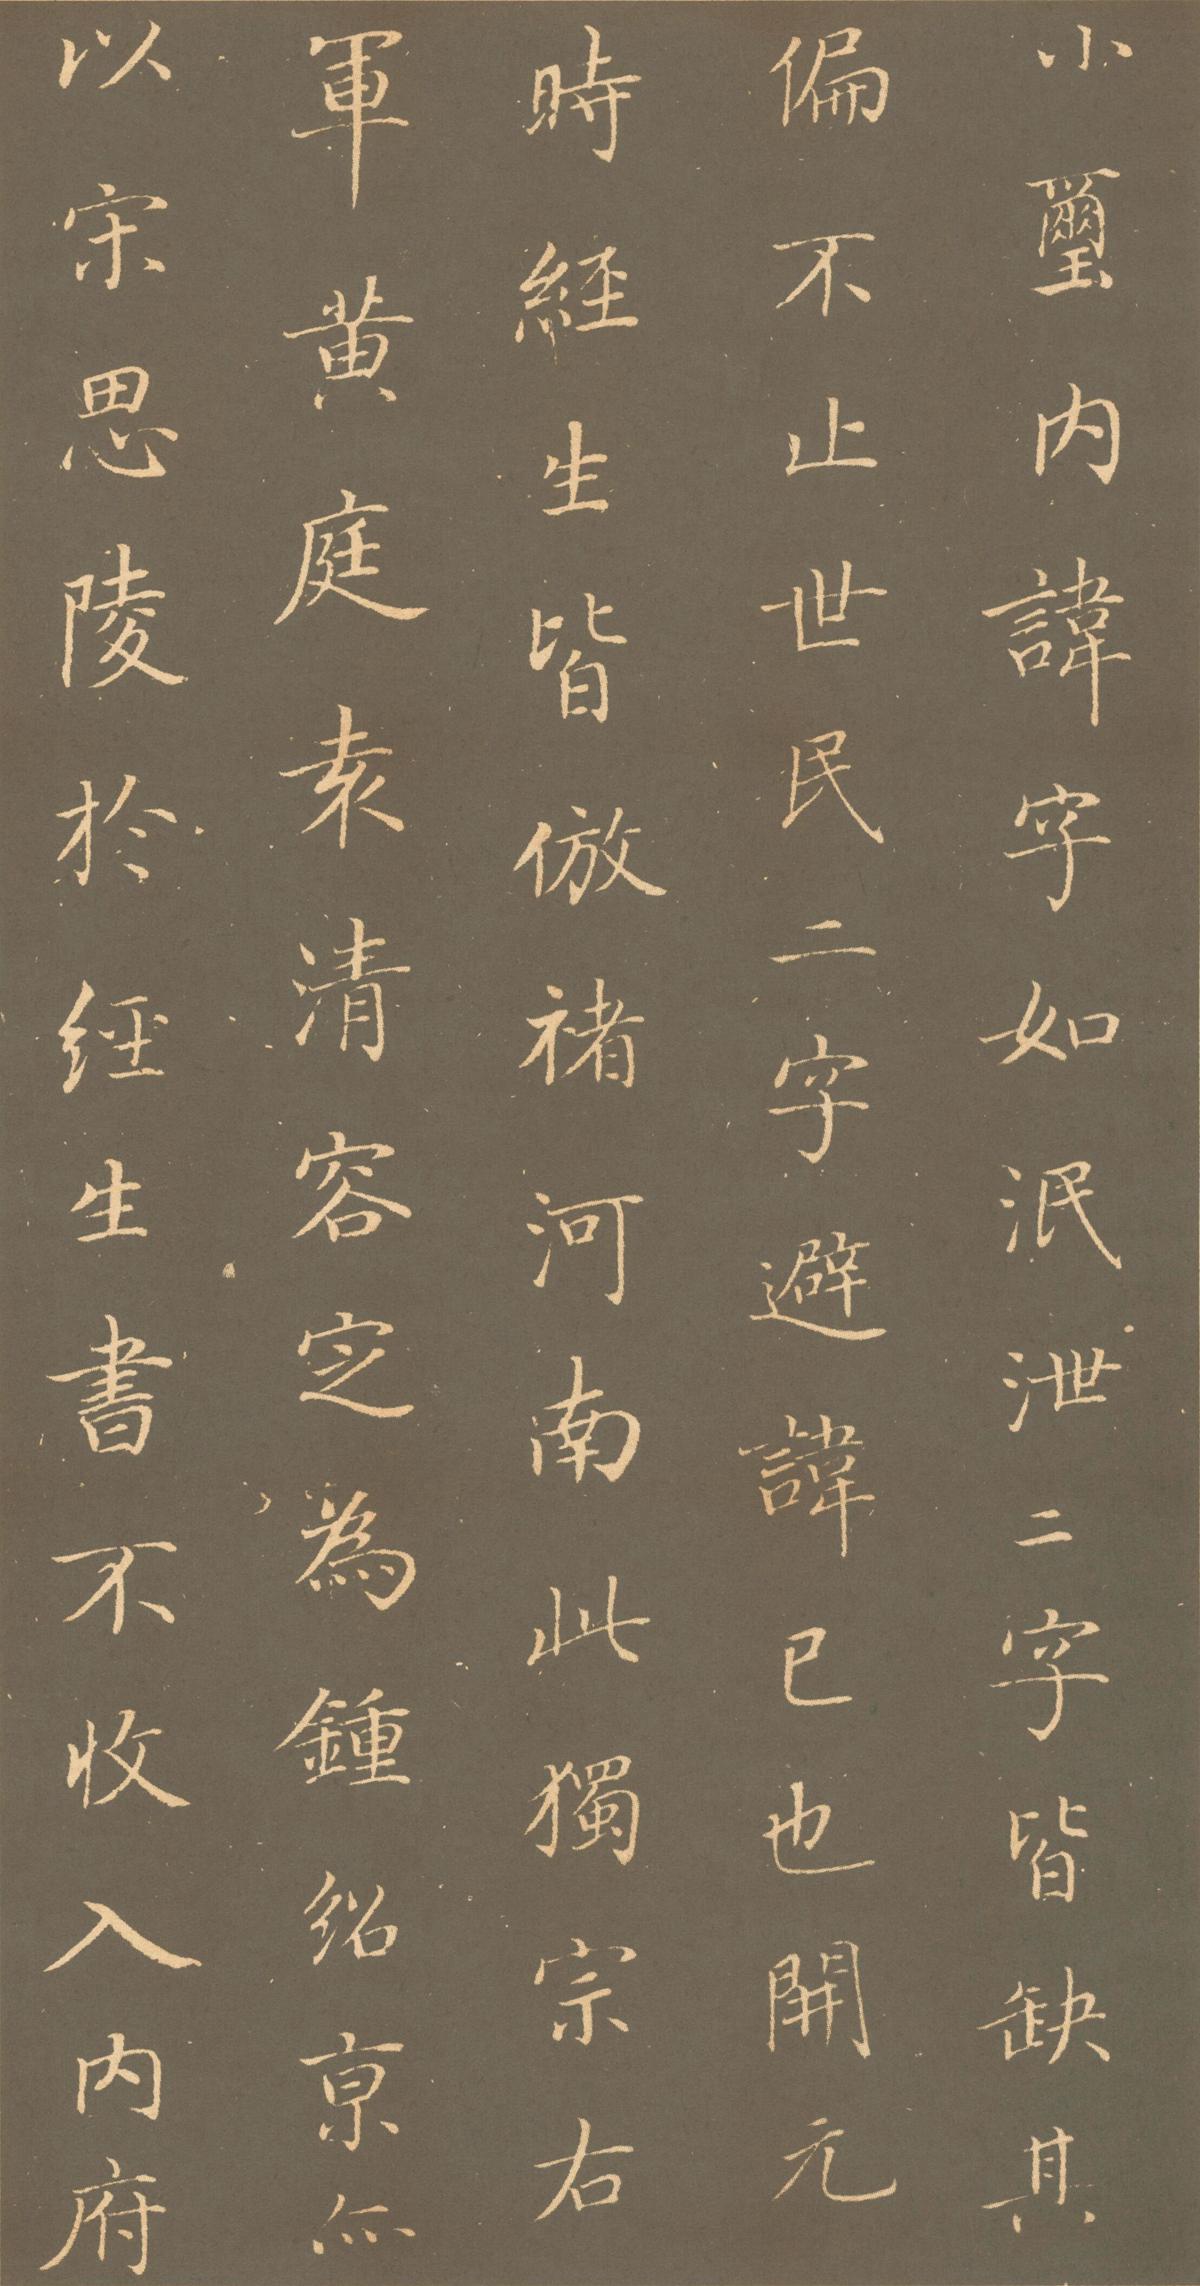 小璽内諱字如泯泄二字皆缺其
偏不止世民二字避諱已也開元
時經生皆倣禇河南此獨宗右
軍黄庭袁清容定為鍾紹京亦
以宋思陵於經生書不收入内府